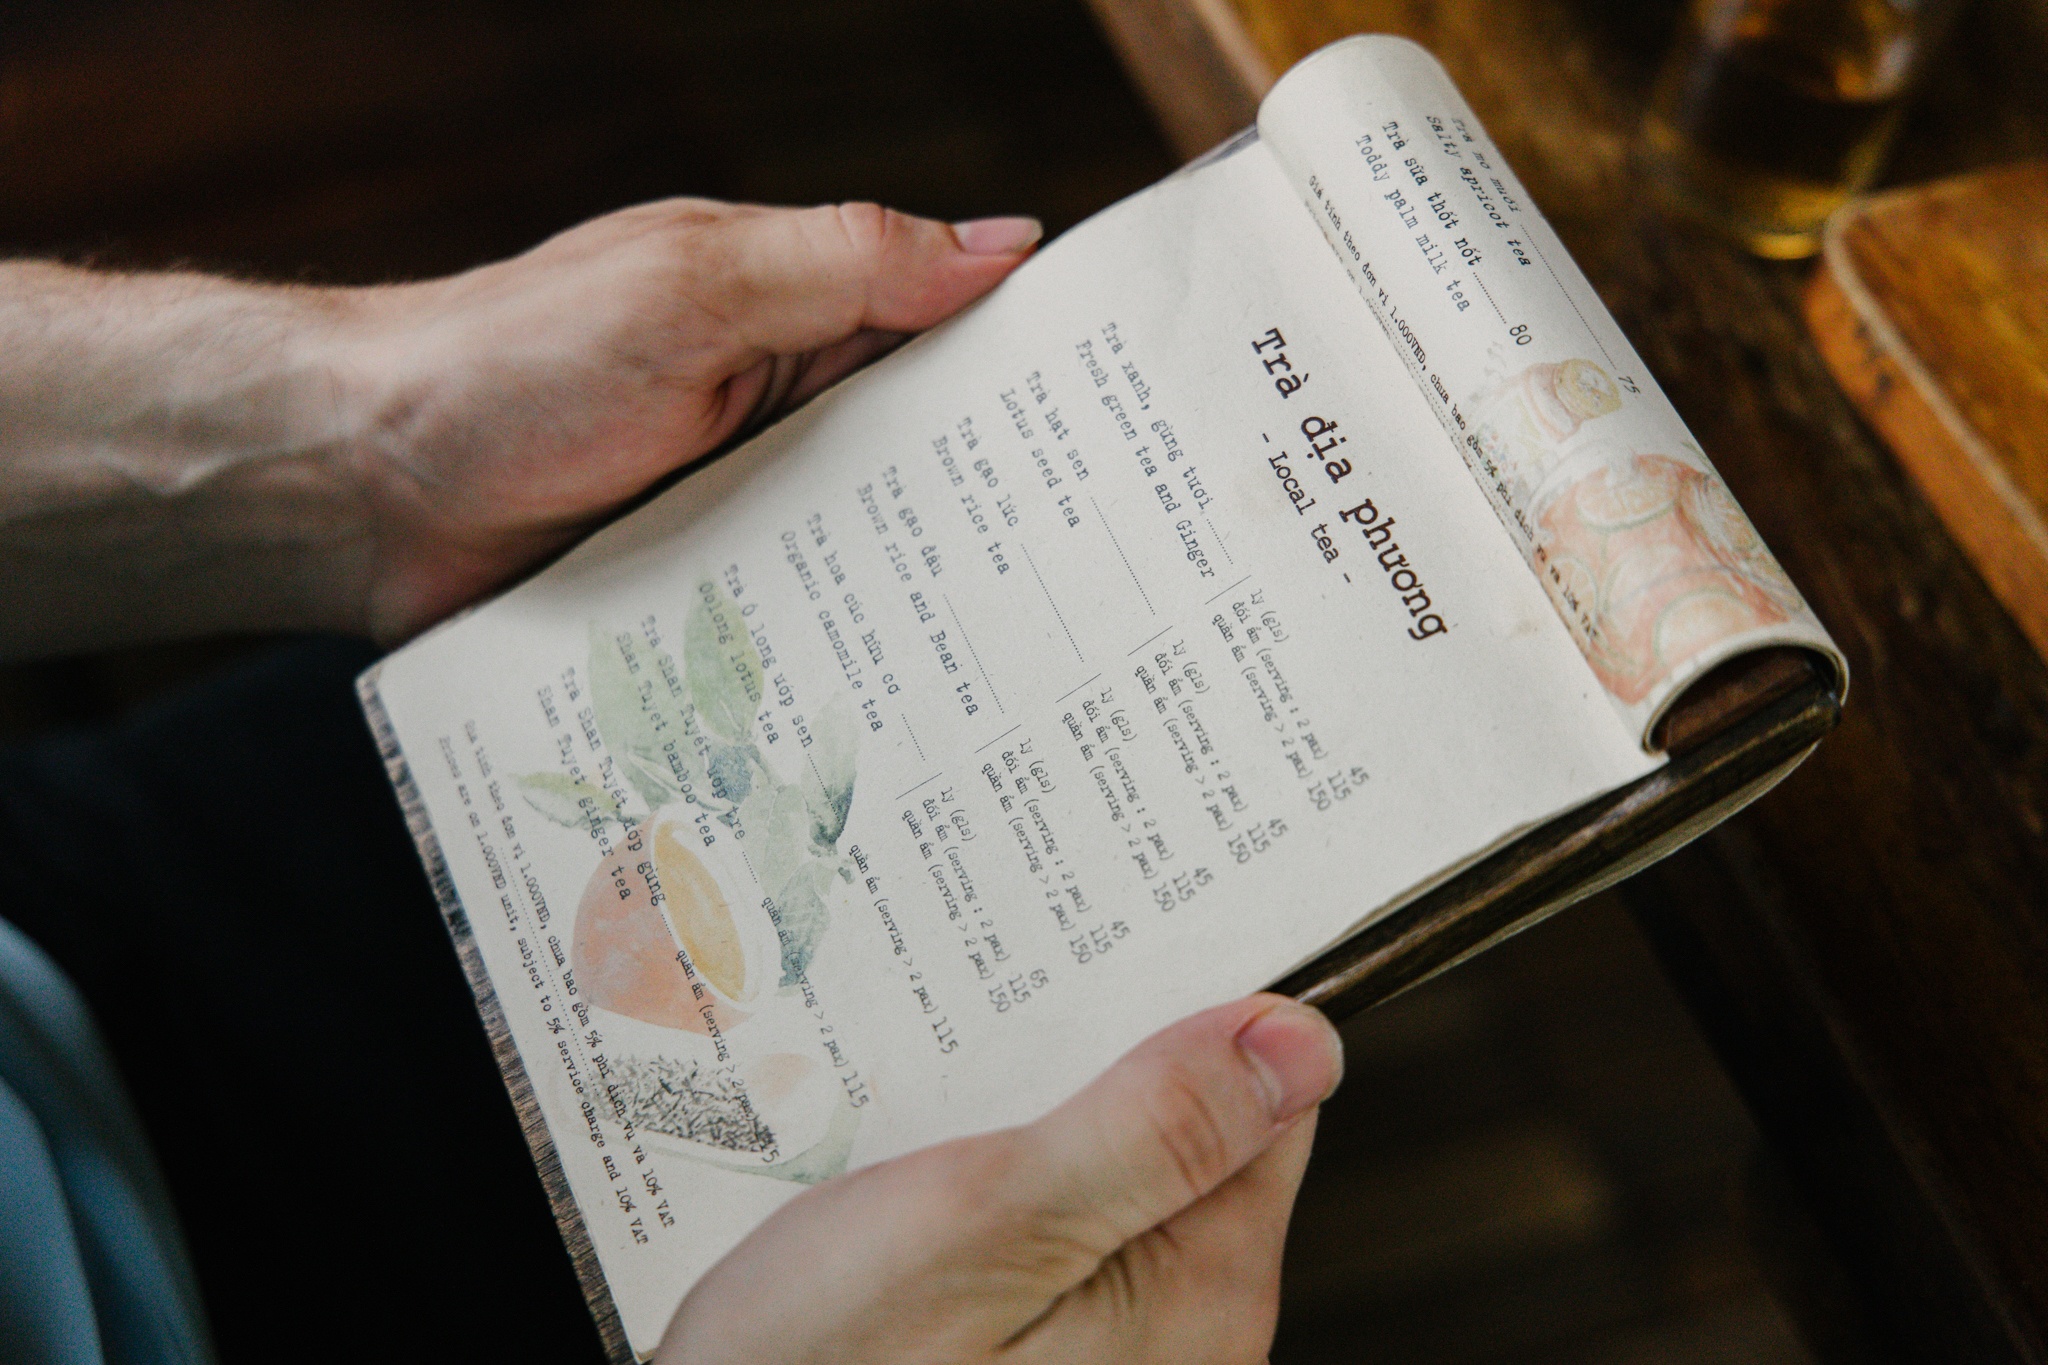 Trà mơ muối 75
Salty apricot tea
Trà sữa thốt nốt 80
Toddy palm milk tea
Giá tính theo đơn vị 1.000VNĐ, chưa bao gồm 5% phí dịch vụ và 10% VAT
Trà địa phương
- Local tea -
Trà xanh, gừng tươi
Fresh green tea and Ginger
ly (gls) 45
đôi ấm (serving : 2 pax) 115
quần ẩm (serving > 2 pax) 150
Trà hạt sen
Lotus seed tea
ly (gls) 45
đôi ấm (serving : 2 pax) 115
quần ẩm (serving > 2 pax) 150
Trà gạo lức
Brown rice tea
ly (gls) 45
đôi ấm (serving : 2 pax) 115
quần ẩm (serving > 2 pax) 150
Trà gạo đậu
Brown rice and Bean tea
ly (gls) 45
đôi ấm (serving : 2 pax) 115
quần ẩm (serving > 2 pax) 150
Trà hoa cúc hữu cơ
Organic camomile tea
ly (gls) 65
đôi ấm (serving : 2 pax) 115
quần ẩm (serving > 2 pax) 150
Trà Ô long ướp sen
Oolong lotus tea
quần ẩm (serving > 2 pax) 115
Trà Shan Tuyết ướp tre
Shan Tuyet bamboo tea
quần ẩm (serving > 2 pax) 115
Trà Shan Tuyết ướp gừng
Shan Tuyet ginger tea
quần ẩm (serving > 2 pax)
Giá tính theo đơn vị 1.000VNĐ, chưa bao gồm 5% phí dịch vụ và 10% VAT
Prices are on 1.000VND unit, subject to 5% service charge and 10% VAT